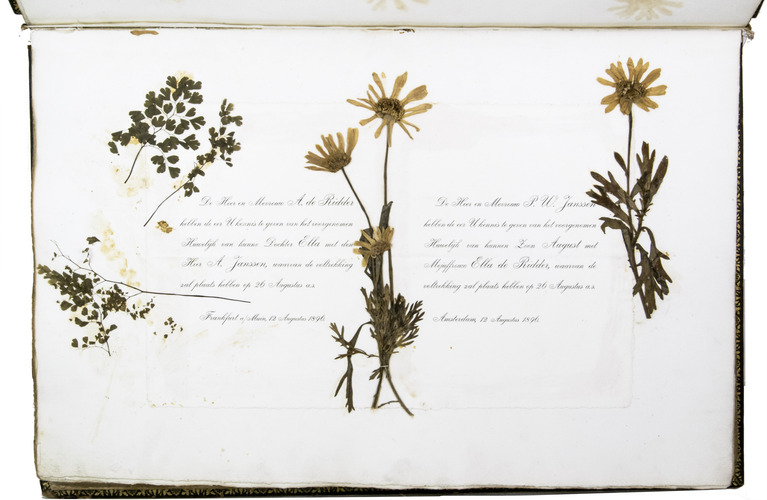 De Heer en Mevrouw A. de Ridder
hebben de eer U kennis te geven van het voorgenomen
Huwelijk van hunne Dochter Ella met den
Heer A. Janssen, waarvan de voltrekking
zal plaats hebben op 26 Augustus a.s.
Frankfurt a/Main, 12 Augustus 1896.
De Heer en Mevrouw P. W. Janssen
hebben de eer U kennis te geven van het voorgenomen
Huwelijk van hunnen Zoon August met
Mejuffrouw Ella de Ridder, waarvan de
voltrekking zal plaats hebben op 26 Augustus a.s.
Amsterdam, 12 Augustus 1896.